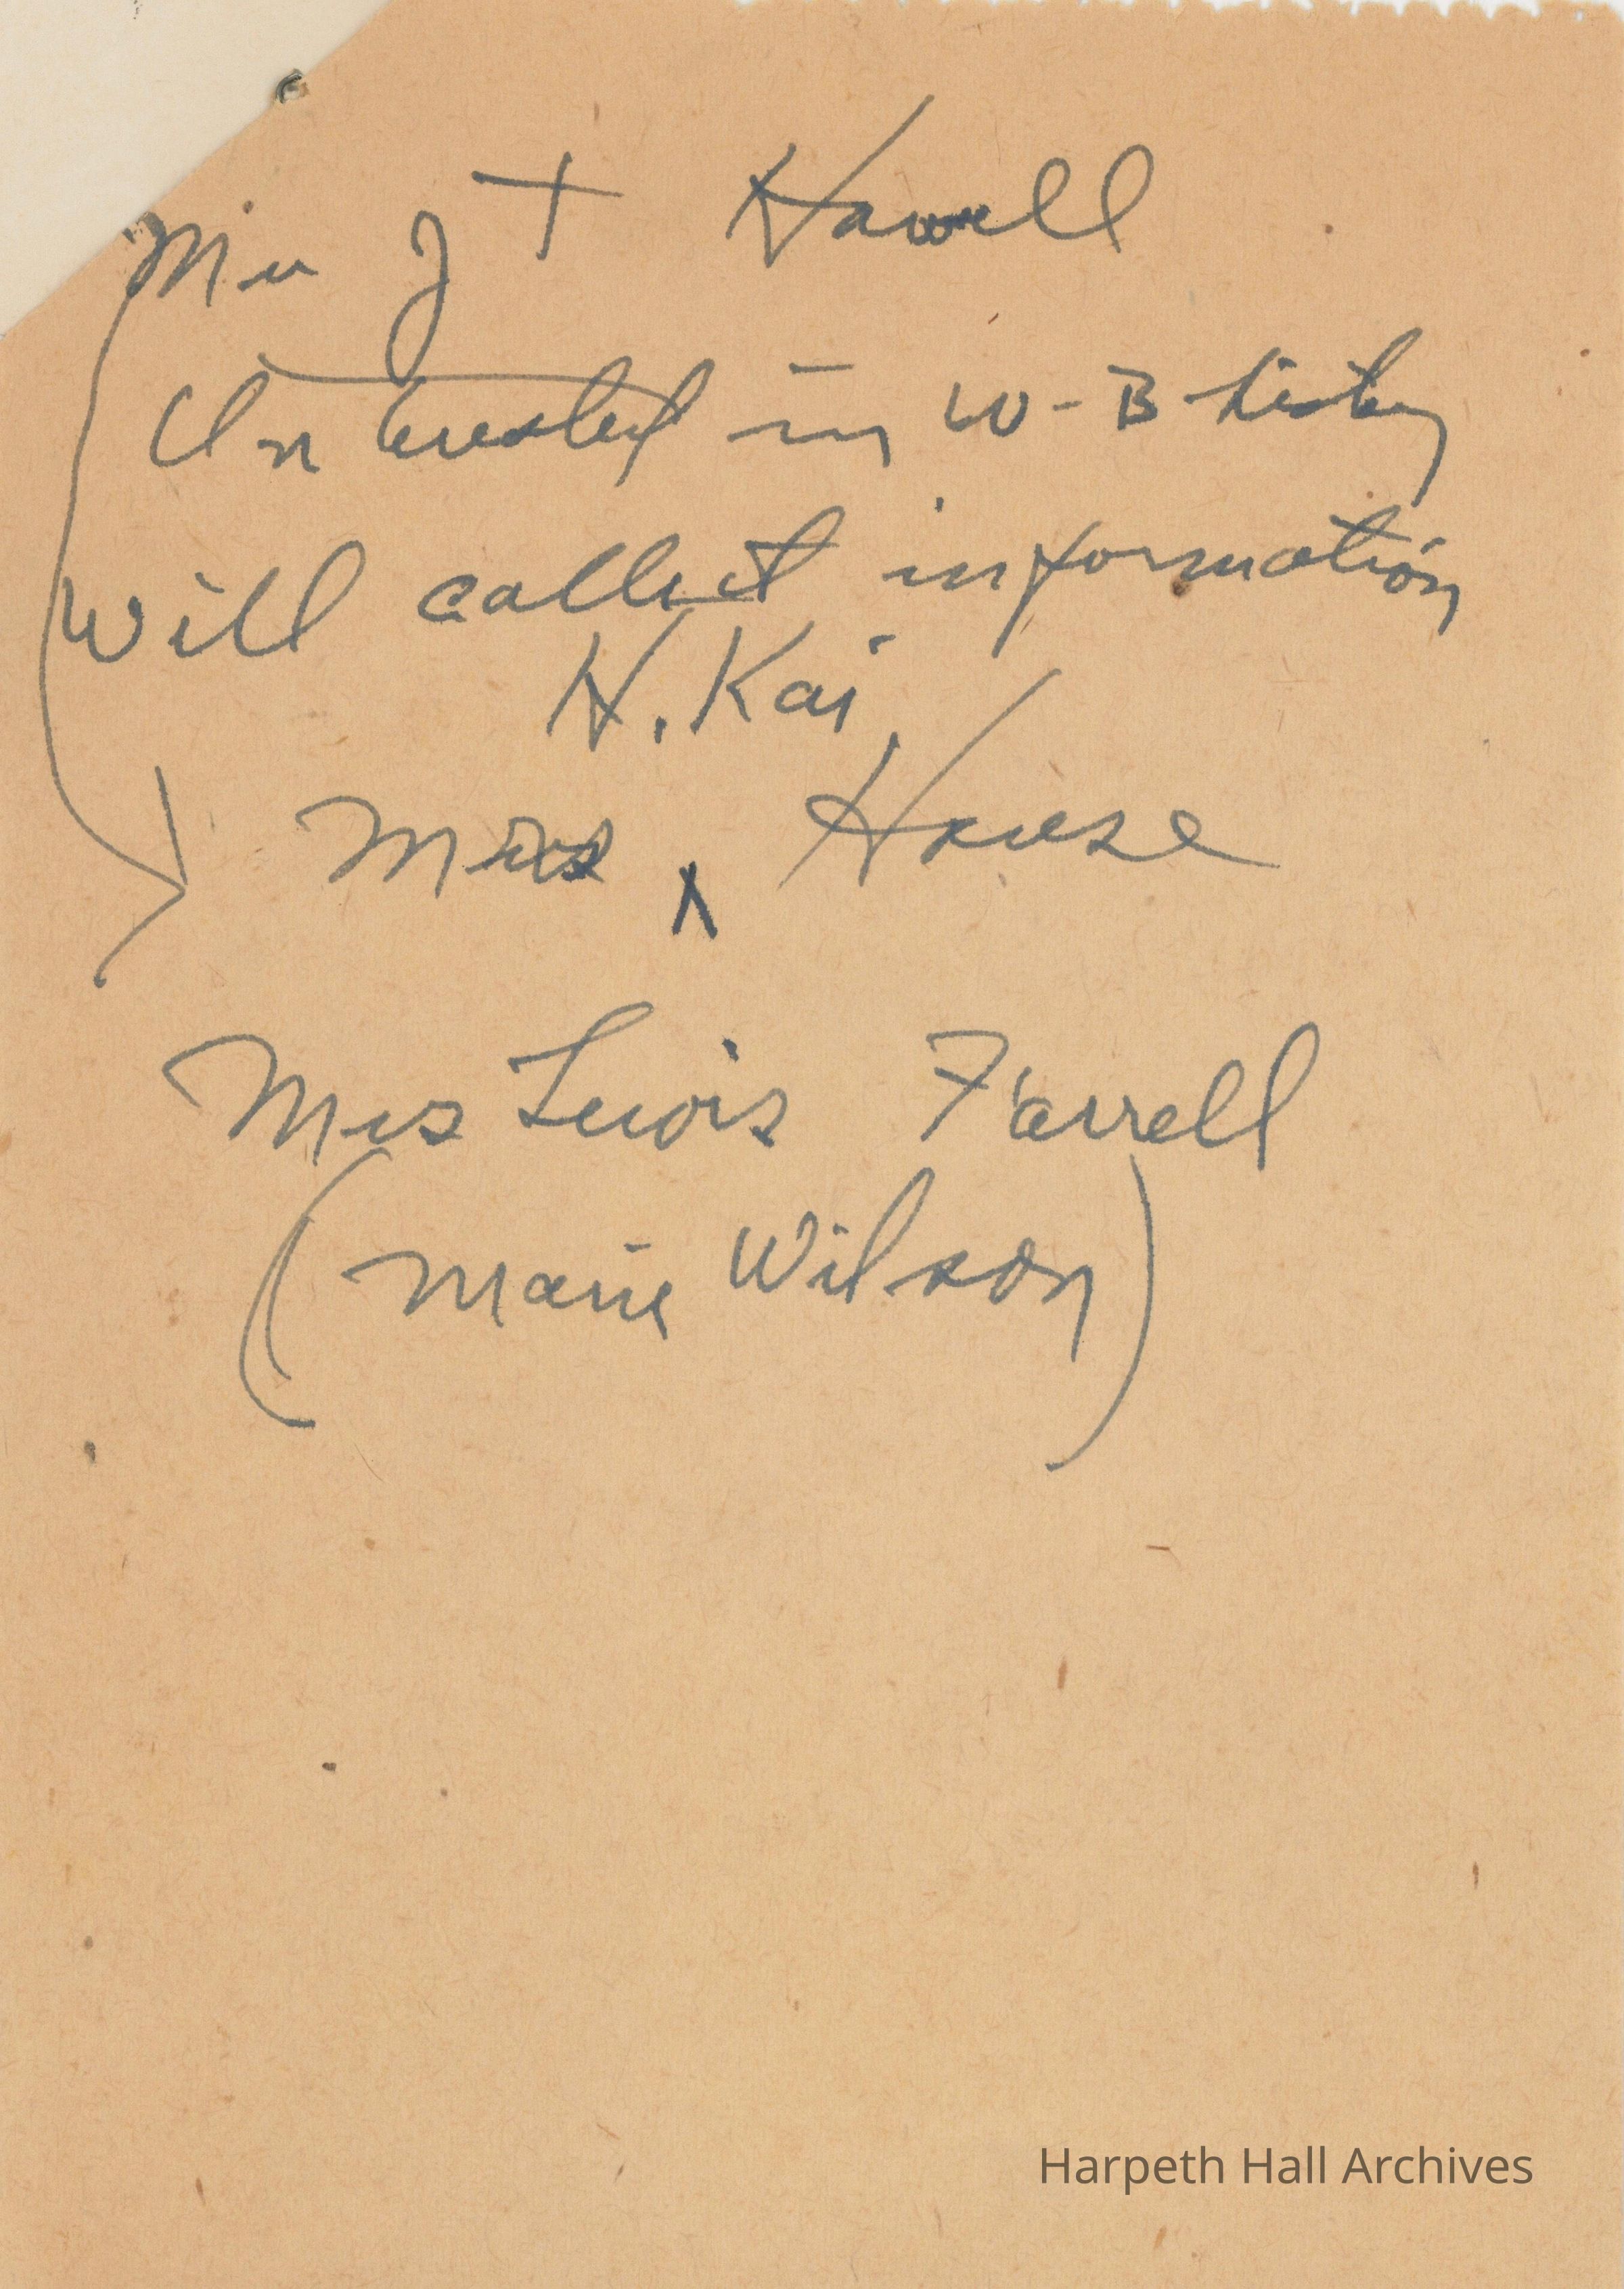 Mrs J T Howell
Interested in W-B history
Will collect information
H. Kai
Mrs ^ House
Mrs Lewis Farrell
(Marie Wilson)
Harpeth Hall Archives